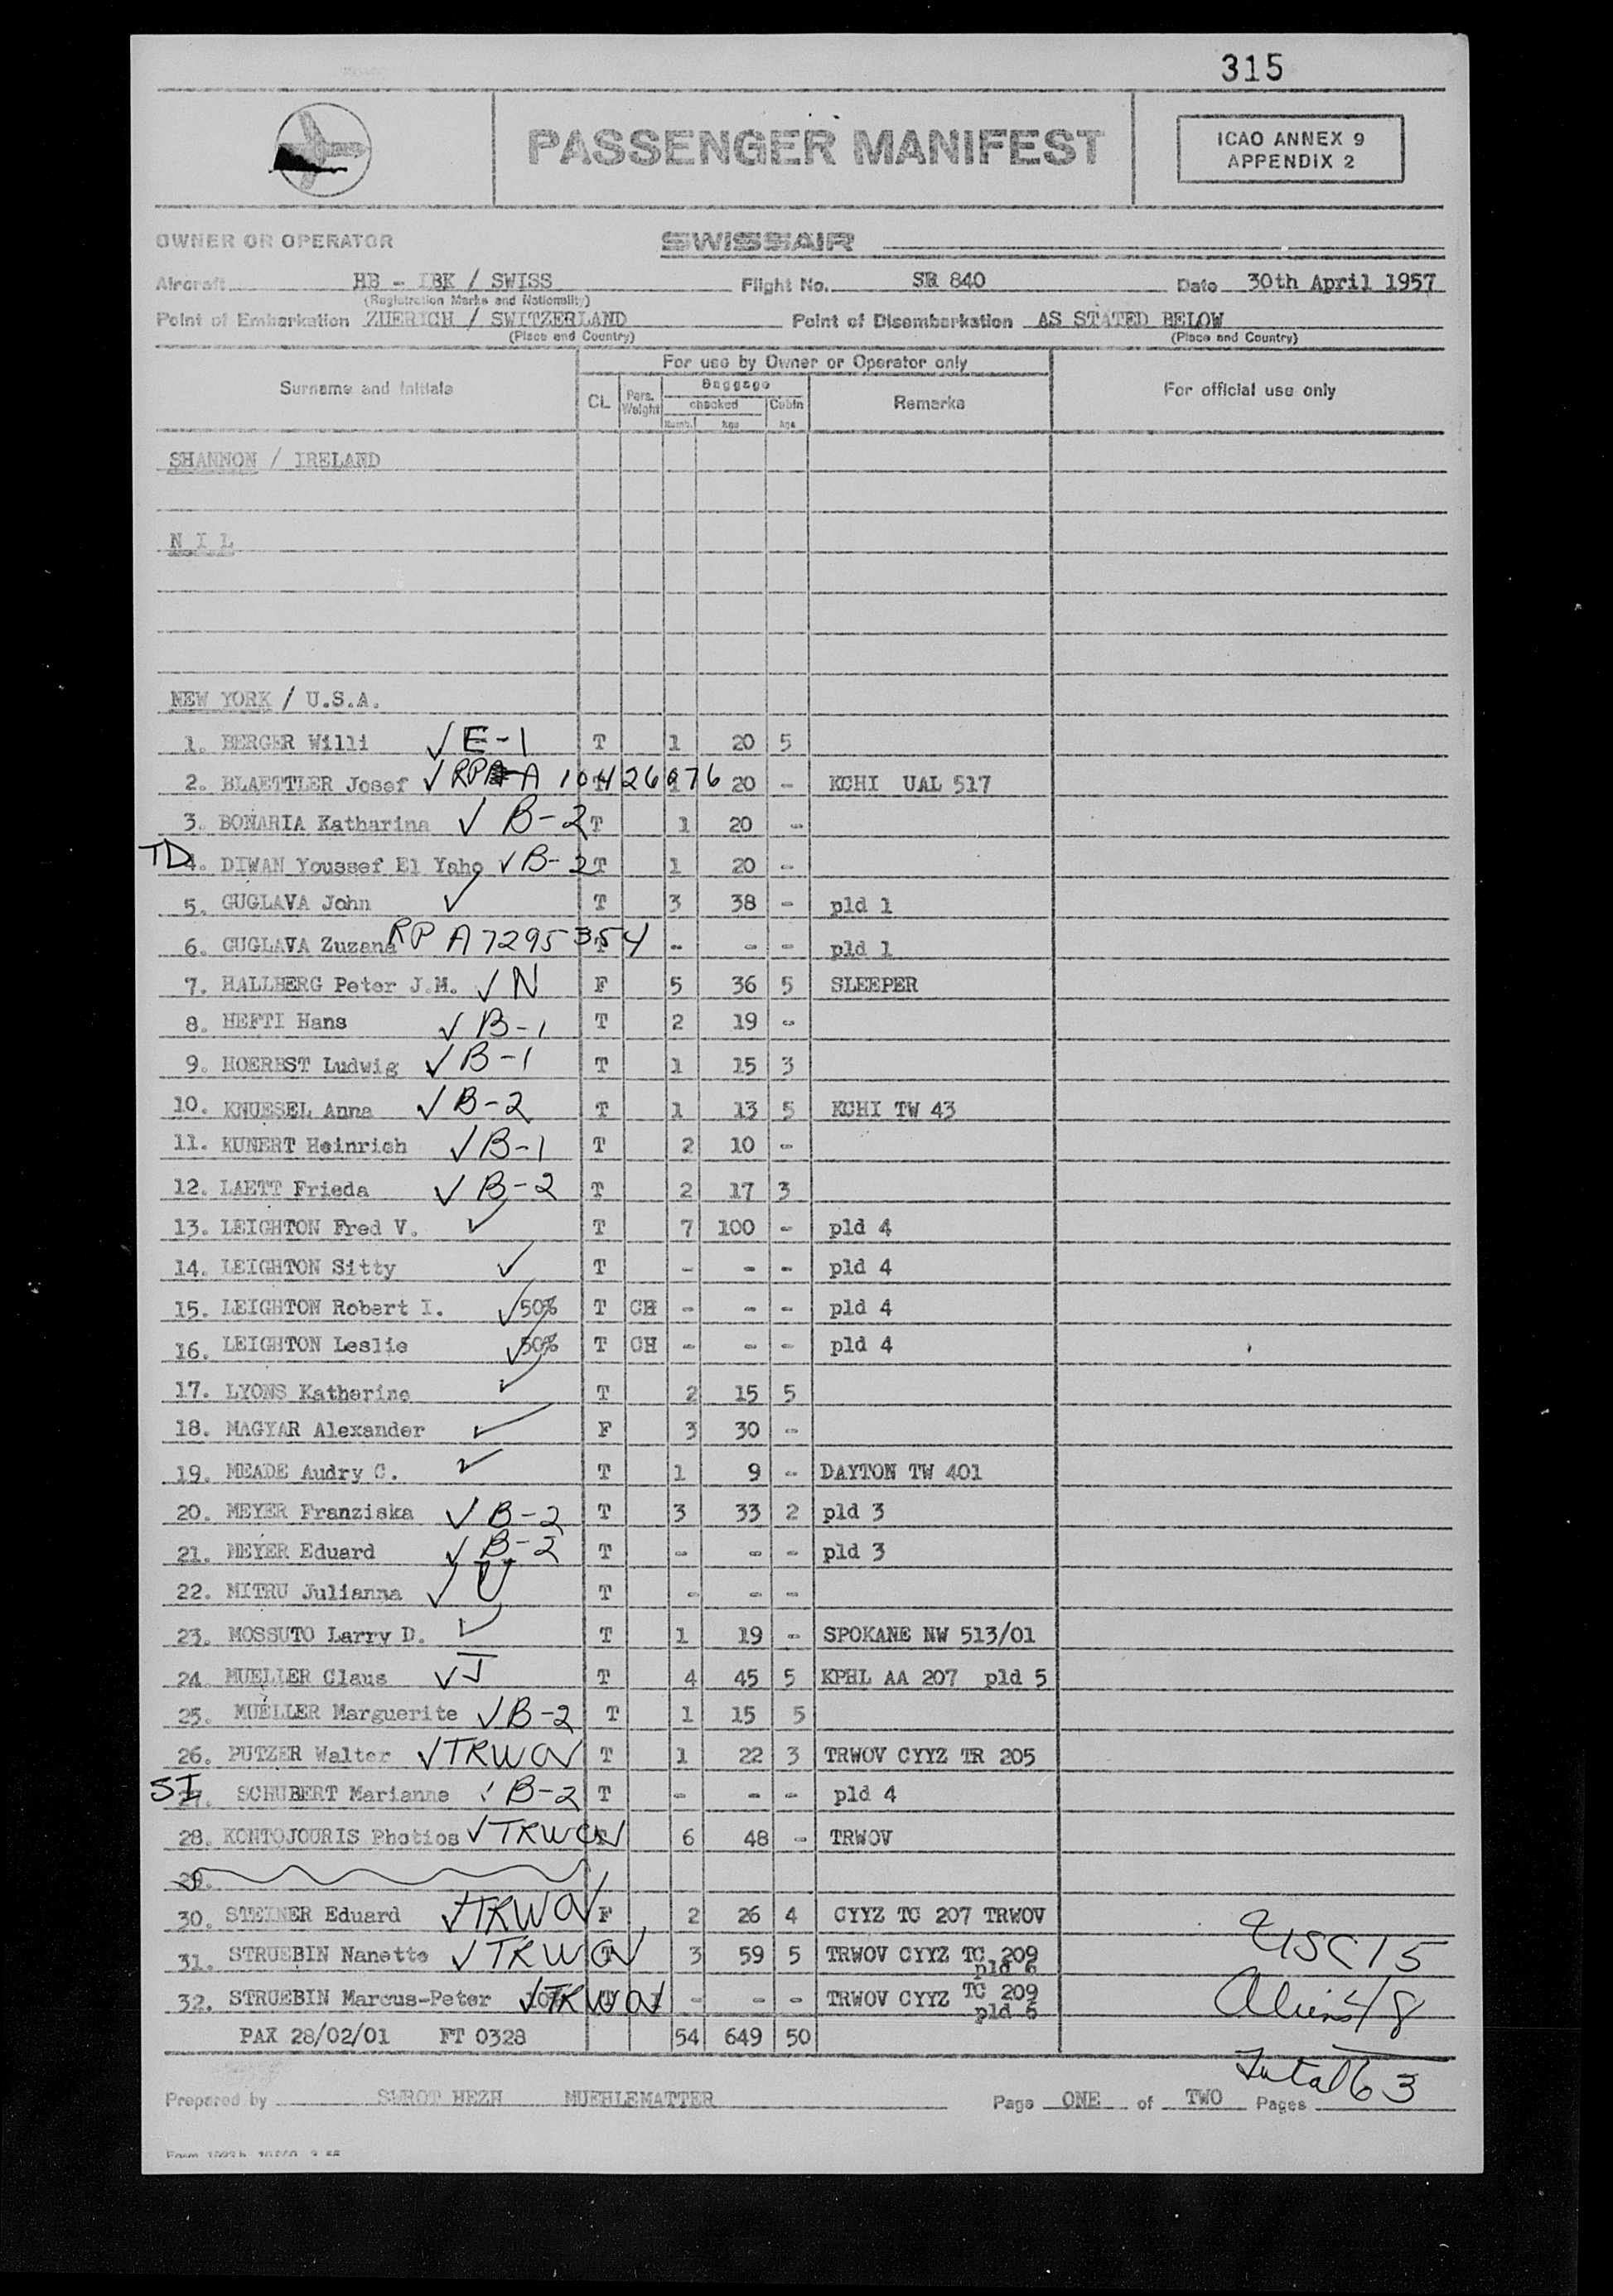 315
PASSENGER MANIFEST
ICAO ANNEX 9
APPENDIX 2
OWNER OR OPERATOR SWISSAIR
Aircraft HB - IBK / SWISS Flight No. SR 840 Date 30th April 1957
(Registration Marks and Nationality)
Point of Embarkation ZUERICH / SWITZERLAND Point of Disembarkation AS STATED BELOW
(Place and Country) (Place and Country)
For use by Owner or Operator only
Surname and Initials CL Pers. Weight Baggage checked Cabin Remarks For official use only
Numb. kgs kgs
SHANNON / IRELAND
N I L
NEW YORK / U.S.A.
1. BERGER Willi ✓ E-1 T 1 20 5
2. BLAETTLER Josef ✓ RP A 10426076 20 - KCHI UAL 517
3. BONARIA Katharina ✓ B-2 T 1 20 -
TD 4. DIWAN Youssef El Yaho ✓ B-2 T 1 20 -
5. GUGLAVA John ✓ T 3 38 - pld 1
6. GUGLAVA Zuzana RP A7295354 - - - pld 1
7. HALLBERG Peter J.M. ✓ N F 5 36 5 SLEEPER
8. HEFTI Hans ✓ B-1 T 2 19 -
9. HOERBST Ludwig ✓ B-1 T 1 15 3
10. KNUESEL Anna ✓ B-2 T 1 13 5 KCHI TW 43
11. KUNERT Heinrich ✓ B-1 T 2 10 -
12. LAETT Frieda ✓ B-2 T 2 17 3
13. LEIGHTON Fred V. ✓ T 7 100 - pld 4
14. LEIGHTON Sitty ✓ T - - - pld 4
15. LEIGHTON Robert I. ✓ 50% T CH - - - pld 4
16. LEIGHTON Leslie ✓ 50% T CH - - - pld 4
17. LYONS Katherine ✓ T 2 15 5
18. MAGYAR Alexander ✓ F 3 30 -
19. MEADE Audry C. ✓ T 1 9 - DAYTON TW 401
20. MEYER Franziska ✓ B-2 T 3 33 2 pld 3
21. MEYER Eduard ✓ B-2 T - - - pld 3
22. MITRU Julianna ✓ U T - - -
23. MOSSUTO Larry D. ✓ T 1 19 - SPOKANE NW 513/01
24. MUELLER Claus ✓ J T 4 45 5 KPHL AA 207 pld 5
25. MUELLER Marguerite ✓ B-2 T 1 15 5
26. PUTZER Walter ✓ TRWOV T 1 22 3 TRWOV CYYZ TR 205
SI 27. SCHUBERT Marianne ✓ B-2 T - - - pld 4
28. KONTOJOURIS Photios ✓ TRWOV T 6 48 - TRWOV
29.
30. STEINER Eduard ✓ TRWOV F 2 26 4 CYYZ TC 207 TRWOV
31. STRUEBIN Nanette ✓ TRWOV T 3 59 5 TRWOV CYYZ TC 209
pld 6
32. STRUEBIN Marcus-Peter ✓ TRWOV - - - TRWOV CYYZ TC 209
pld 6
USC 15
Aliens 48
Total 63
PAX 28/02/01 FT 0328 54 649 50
Prepared by SWROT HEZH MUEHLEMATTER Page ONE of TWO Pages